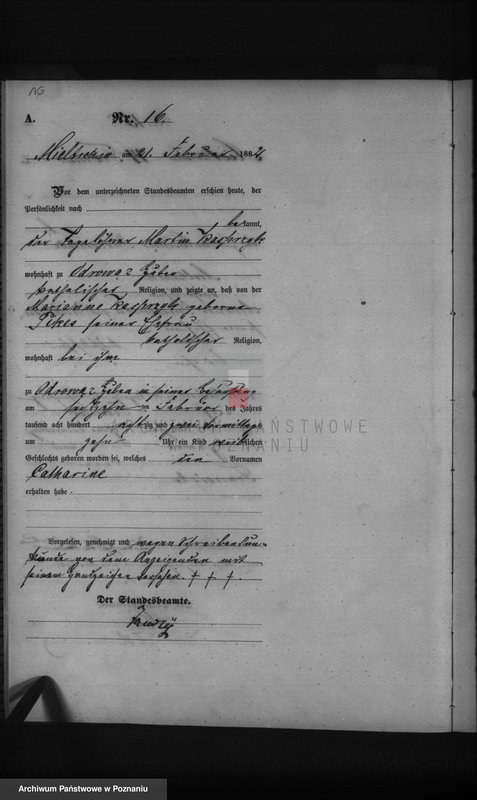 16
A. Nr. 16.
am 21. Februar 1882.
Vor dem unterzeichneten Standesbeamten erschien heute, der
Persönlichkeit nach
bekannt,
der Tagelöhner Martin Kasprzyk
wohnhaft zu Odrowaz Guben
katholischer Religion, und zeigte an, daß von der
Marianne Kasprzyk geborene
seiner Ehefrau
katholischer Religion,
wohnhaft bei ihm
zu Odrowaz Guben in seiner Behausung
am sechzehn ten Februar des Jahres
tausend acht hundert achtzig und zwei Vormittags
um zehn Uhr ein Kind weiblichen
Geschlechts geboren worden sei, welches den Vornamen
Catharine
erhalten habe.
Vorgelesen, genehmigt und wegen Schreibensun-
kunde von dem Anzeigenden mit
seinen Handzeichen versehen. † † †.
Der Standesbeamte.
ARCHIWUM PAŃSTWOWE
W POZNANIU
Archiwum Państwowe w Poznaniu